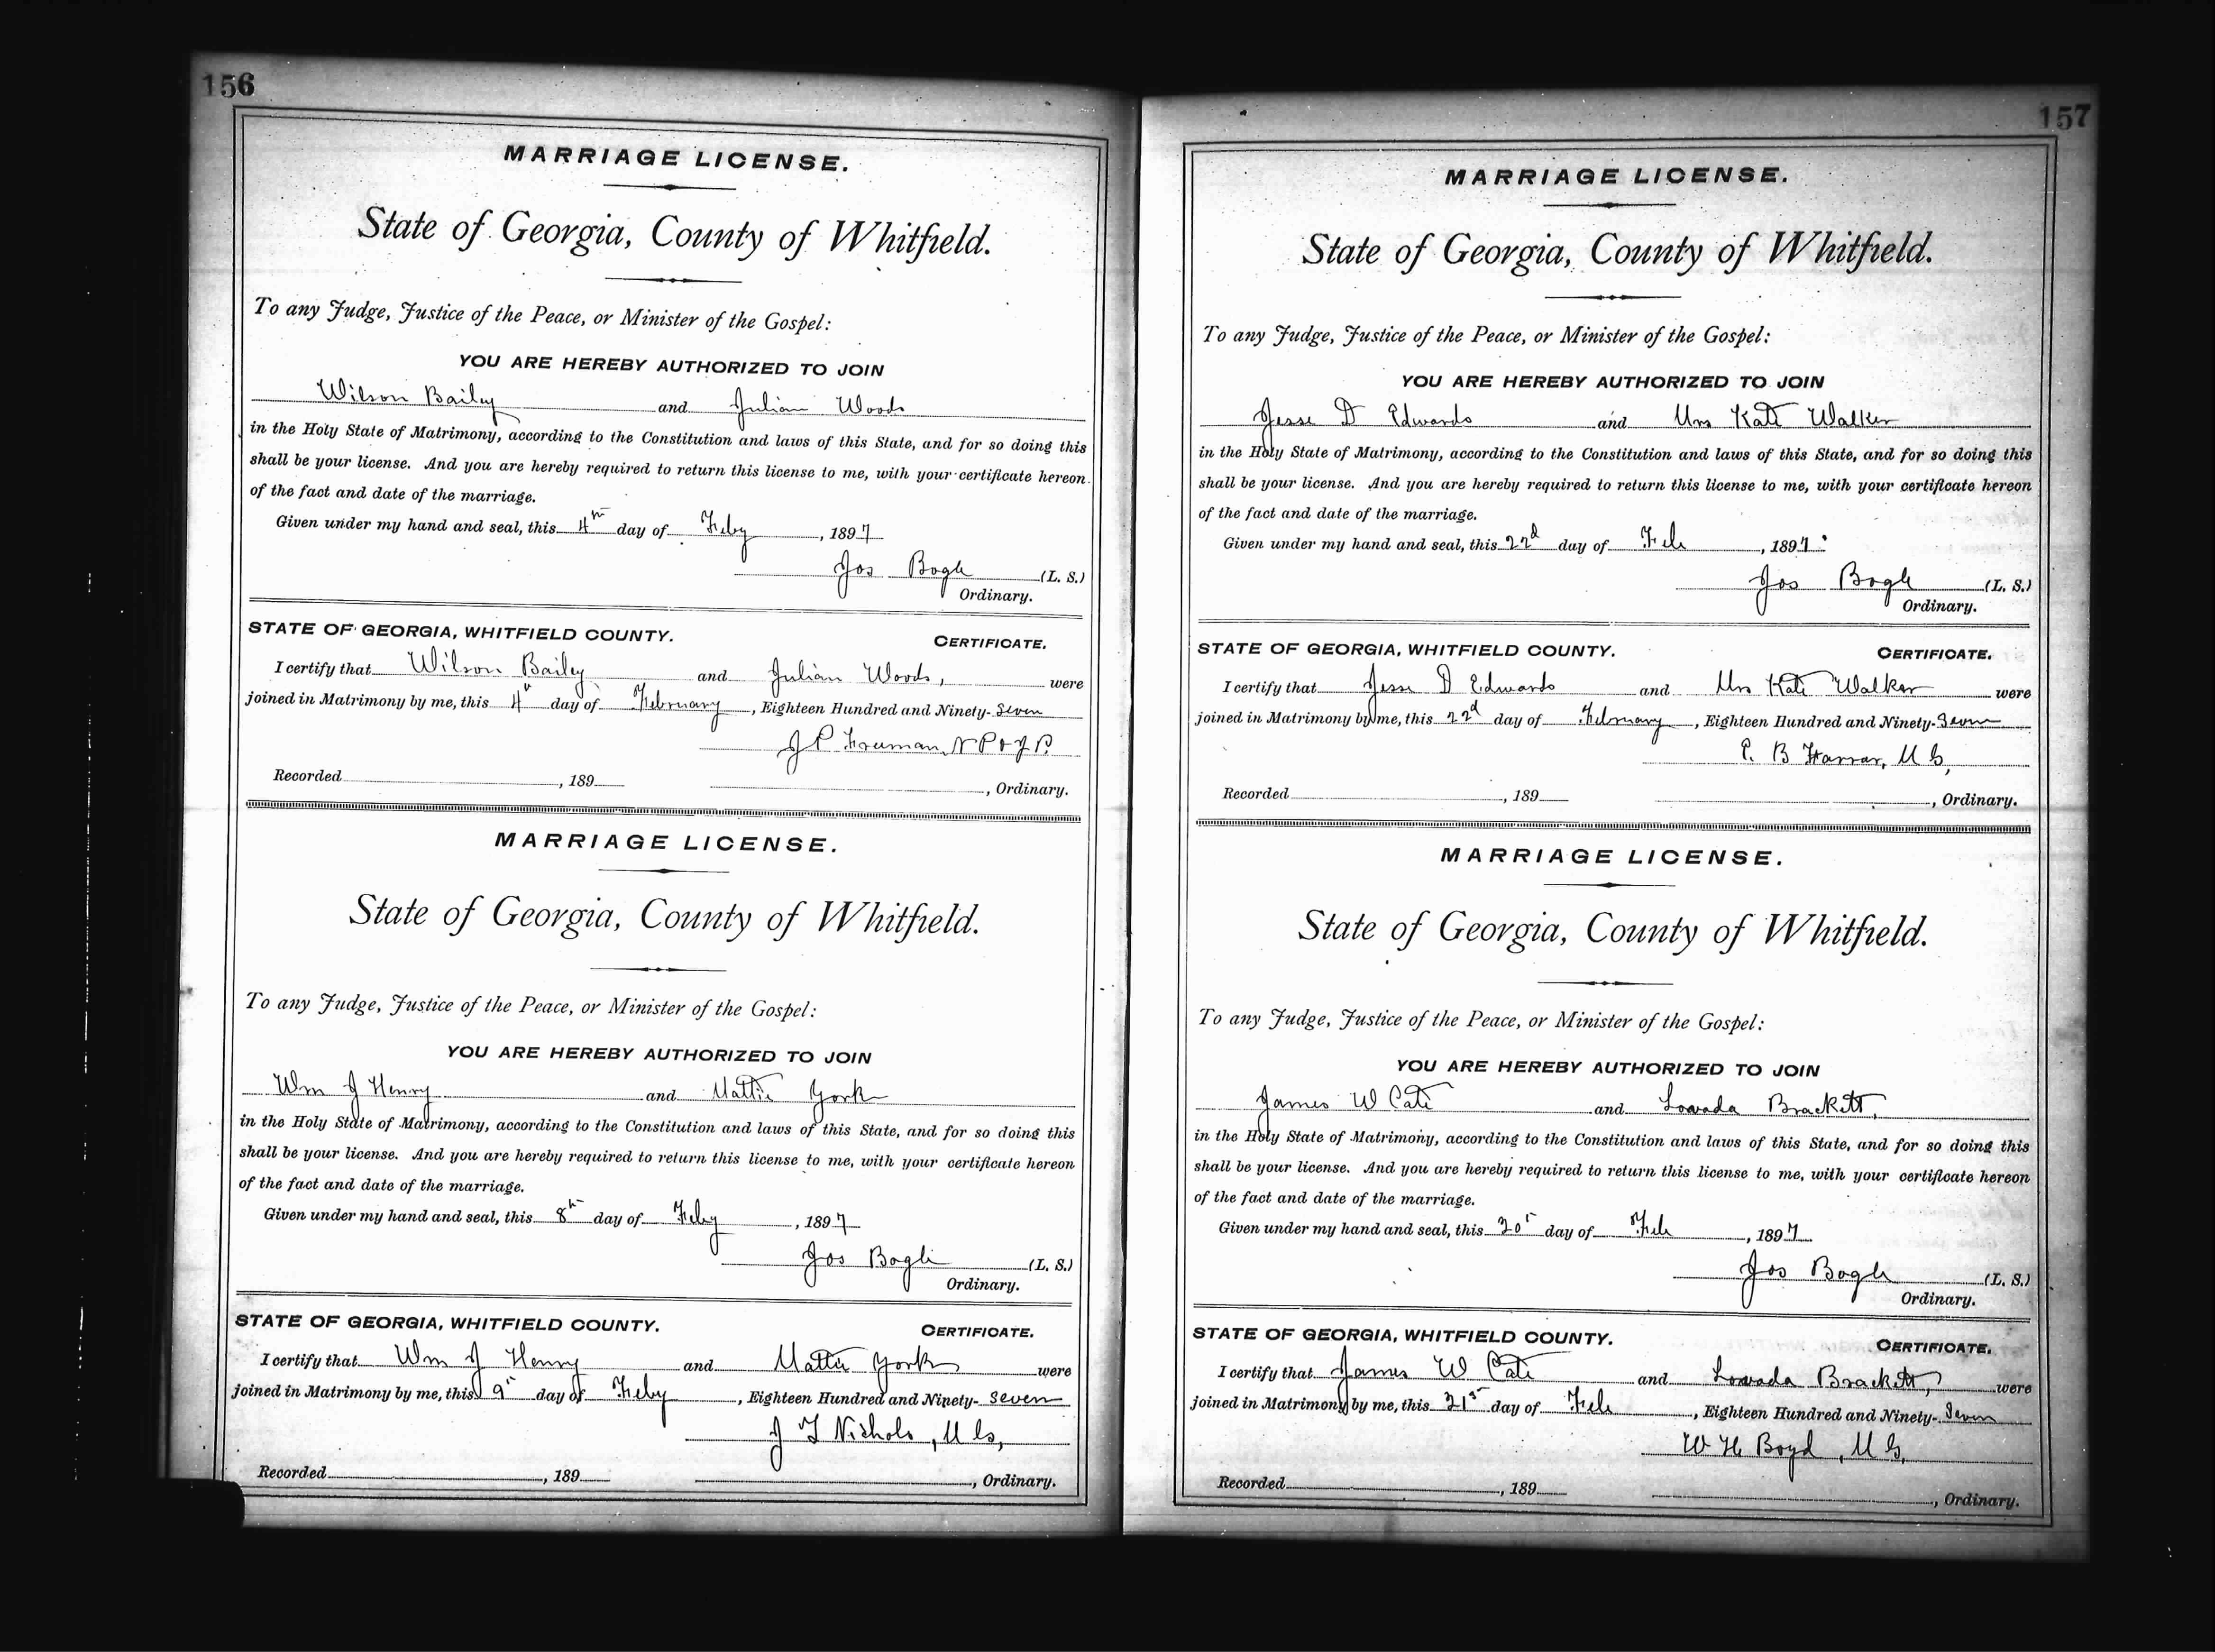 156
MARRIAGE LICENSE.
State of Georgia, County of Whitfield.
To any Judge, Justice of the Peace, or Minister of the Gospel:
YOU ARE HEREBY AUTHORIZED TO JOIN
Wilson Bailey and Julian Woods
in the Holy State of Matrimony, according to the Constitution and laws of this State, and for so doing this
shall be your license. And you are hereby required to return this license to me, with your certificate hereon
of the fact and date of the marriage.
Given under my hand and seal, this 4th day of Feby, 1897
Jos Bogle (L. S.)
Ordinary.
STATE OF GEORGIA, WHITFIELD COUNTY. CERTIFICATE.
I certify that Wilson Bailey and Julian Woods, were
joined in Matrimony by me, this 4th day of February, Eighteen Hundred and Ninety-Seven
J P Freeman, N P & J P.
Recorded , 189 , Ordinary.
MARRIAGE LICENSE.
State of Georgia, County of Whitfield.
To any Judge, Justice of the Peace, or Minister of the Gospel:
YOU ARE HEREBY AUTHORIZED TO JOIN
Wm J Henry and Mattie York
in the Holy State of Matrimony, according to the Constitution and laws of this State, and for so doing this
shall be your license. And you are hereby required to return this license to me, with your certificate hereon
of the fact and date of the marriage.
Given under my hand and seal, this 8th day of Feby, 1897
Jos Bogle (L. S.)
Ordinary.
STATE OF GEORGIA, WHITFIELD COUNTY. CERTIFICATE.
I certify that Wm J Henry and Mattie York were
joined in Matrimony by me, this 9th day of Feby, Eighteen Hundred and Ninety-Seven
J T Nichols, M G,
Recorded , 189 , Ordinary.
157
MARRIAGE LICENSE.
State of Georgia, County of Whitfield.
To any Judge, Justice of the Peace, or Minister of the Gospel:
YOU ARE HEREBY AUTHORIZED TO JOIN
Jesse D Edwards and Mrs Kate Walker
in the Holy State of Matrimony, according to the Constitution and laws of this State, and for so doing this
shall be your license. And you are hereby required to return this license to me, with your certificate hereon
of the fact and date of the marriage.
Given under my hand and seal, this 22d day of Feb, 1897
Jos Bogle (L. S.)
Ordinary.
STATE OF GEORGIA, WHITFIELD COUNTY. CERTIFICATE.
I certify that Jesse D Edwards and Mrs Kate Walker were
joined in Matrimony by me, this 22d day of February, Eighteen Hundred and Ninety-Seven
B M G,
Recorded , 189 , Ordinary.
MARRIAGE LICENSE.
State of Georgia, County of Whitfield.
To any Judge, Justice of the Peace, or Minister of the Gospel:
YOU ARE HEREBY AUTHORIZED TO JOIN
James W Cate and Lovada Brackett,
in the Holy State of Matrimony, according to the Constitution and laws of this State, and for so doing this
shall be your license. And you are hereby required to return this license to me, with your certificate hereon
of the fact and date of the marriage.
Given under my hand and seal, this 20th day of Feb, 1897
Jos Bogle (L. S.)
Ordinary.
STATE OF GEORGIA, WHITFIELD COUNTY. CERTIFICATE.
I certify that James W Cate and Lovada Brackett, were
joined in Matrimony by me, this 21st day of Feb, Eighteen Hundred and Ninety-Seven
W H Boyd, M G,
Recorded , 189 , Ordinary.